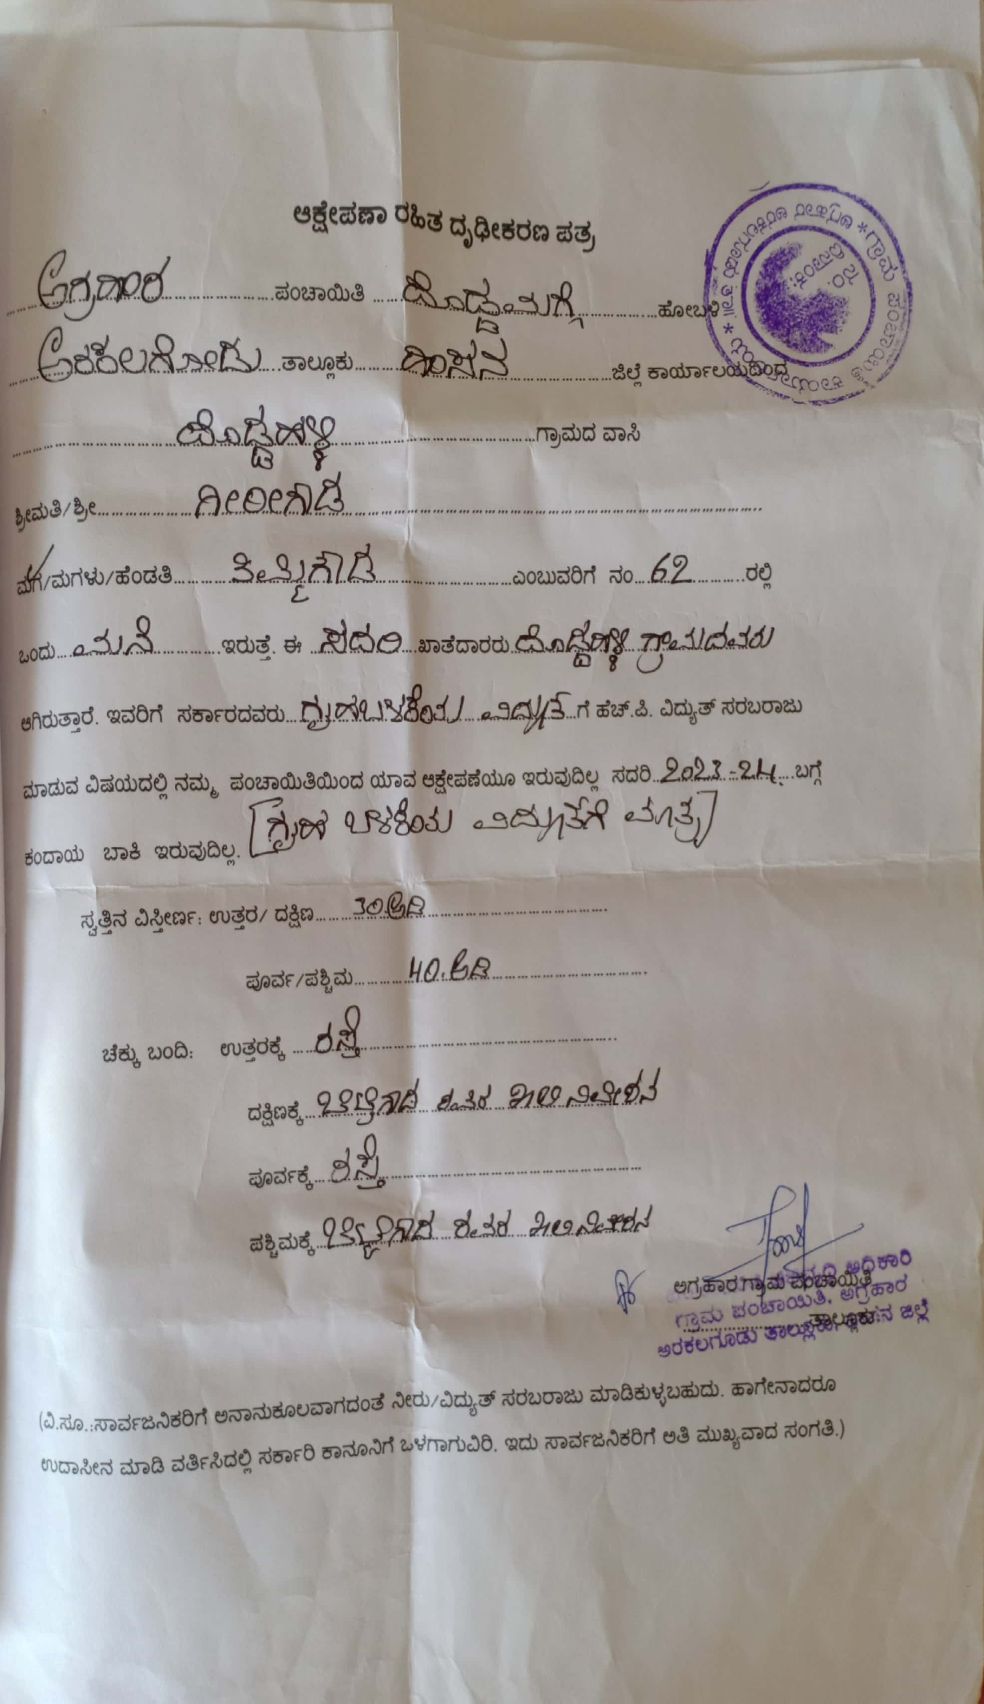 ಆಕ್ಷೇಪಣಾ ರಹಿತ ದೃಢೀಕರಣ ಪತ್ರ
ಗ್ರಾಮ ಪಂಚಾಯಿತಿ ಕಾರ್ಯಾಲಯ * ಅಗ್ರಹಾರ ಅರಕಲಗೂಡು ತಾ॥ *
ನಂ
ದಿನಾಂಕ:
ಅಗ್ರಹಾರ ಪಂಚಾಯಿತಿ ದೊಡ್ಡಮಗ್ಗೆ ಹೋಬಳಿ
ಅರಕಲಗೋಡು ತಾಲ್ಲೂಕು ಹಾಸನ ಜಿಲ್ಲೆ ಕಾರ್ಯಾಲಯದಿಂದ
ದೊಡ್ಡಹಳ್ಳಿ ಗ್ರಾಮದ ವಾಸಿ
ಶ್ರೀಮತಿ/ಶ್ರೀ ಗಿರೀಗೌಡ
ಮಗ/ಮಗಳು/ಹೆಂಡತಿ ತಿಮ್ಮೇಗೌಡ ಎಂಬುವರಿಗೆ ನಂ 62 ರಲ್ಲಿ
ಒಂದು ಮನೆ ಇರುತ್ತೆ. ಈ ಸದರಿ ಖಾತೆದಾರರು ದೊಡ್ಡಹಳ್ಳಿ ಗ್ರಾಮದವರು
ಆಗಿರುತ್ತಾರೆ. ಇವರಿಗೆ ಸರ್ಕಾರದವರು ಗೃಹಬಳಕೆಯ ವಿದ್ಯುತ್ ಗೆ ಹೆಚ್.ಪಿ. ವಿದ್ಯುತ್ ಸರಬರಾಜು
ಮಾಡುವ ವಿಷಯದಲ್ಲಿ ನಮ್ಮ ಪಂಚಾಯಿತಿಯಿಂದ ಯಾವ ಆಕ್ಷೇಪಣೆಯೂ ಇರುವುದಿಲ್ಲ ಸದರಿ 2023-24 ಬಗ್ಗೆ
ಕಂದಾಯ ಬಾಕಿ ಇರುವುದಿಲ್ಲ. [ಗೃಹ ಬಳಕೆಯ ವಿದ್ಯುತ್‌ಗೆ ಮಾತ್ರ]
ಸ್ವತ್ತಿನ ವಿಸ್ತೀರ್ಣ: ಉತ್ತರ/ ದಕ್ಷಿಣ 30 ಅಡಿ
ಪೂರ್ವ/ಪಶ್ಚಿಮ 40 ಅಡಿ
ಚೆಕ್ಕು ಬಂದಿ: ಉತ್ತರಕ್ಕೆ ರಸ್ತೆ
ದಕ್ಷಿಣಕ್ಕೆ ರವರ ಖಾಲಿ ನಿವೇಶನ
ಪೂರ್ವಕ್ಕೆ ರಸ್ತೆ
ಪಶ್ಚಿಮಕ್ಕೆ ರವರ ಖಾಲಿ ನಿವೇಶನ
ಅಗ್ರಹಾರ ಗ್ರಾಮ ಪಂಚಾಯಿತಿ
ತಾಲ್ಲೂಕು
ಅಧಿಕಾರಿ
ಗ್ರಾಮ ಪಂಚಾಯಿತಿ, ಅಗ್ರಹಾರ
ಅರಕಲಗೂಡು ತಾಲ್ಲೂಕು, ಹಾಸನ ಜಿಲ್ಲೆ
(ವಿ.ಸೂ.:ಸಾರ್ವಜನಿಕರಿಗೆ ಅನಾನುಕೂಲವಾಗದಂತೆ ನೀರು/ವಿದ್ಯುತ್ ಸರಬರಾಜು ಮಾಡಿಕುಳ್ಳಬಹುದು. ಹಾಗೇನಾದರೂ
ಉದಾಸೀನ ಮಾಡಿ ವರ್ತಿಸಿದಲ್ಲಿ ಸರ್ಕಾರಿ ಕಾನೂನಿಗೆ ಒಳಗಾಗುವಿರಿ. ಇದು ಸಾರ್ವಜನಿಕರಿಗೆ ಅತಿ ಮುಖ್ಯವಾದ ಸಂಗತಿ.)